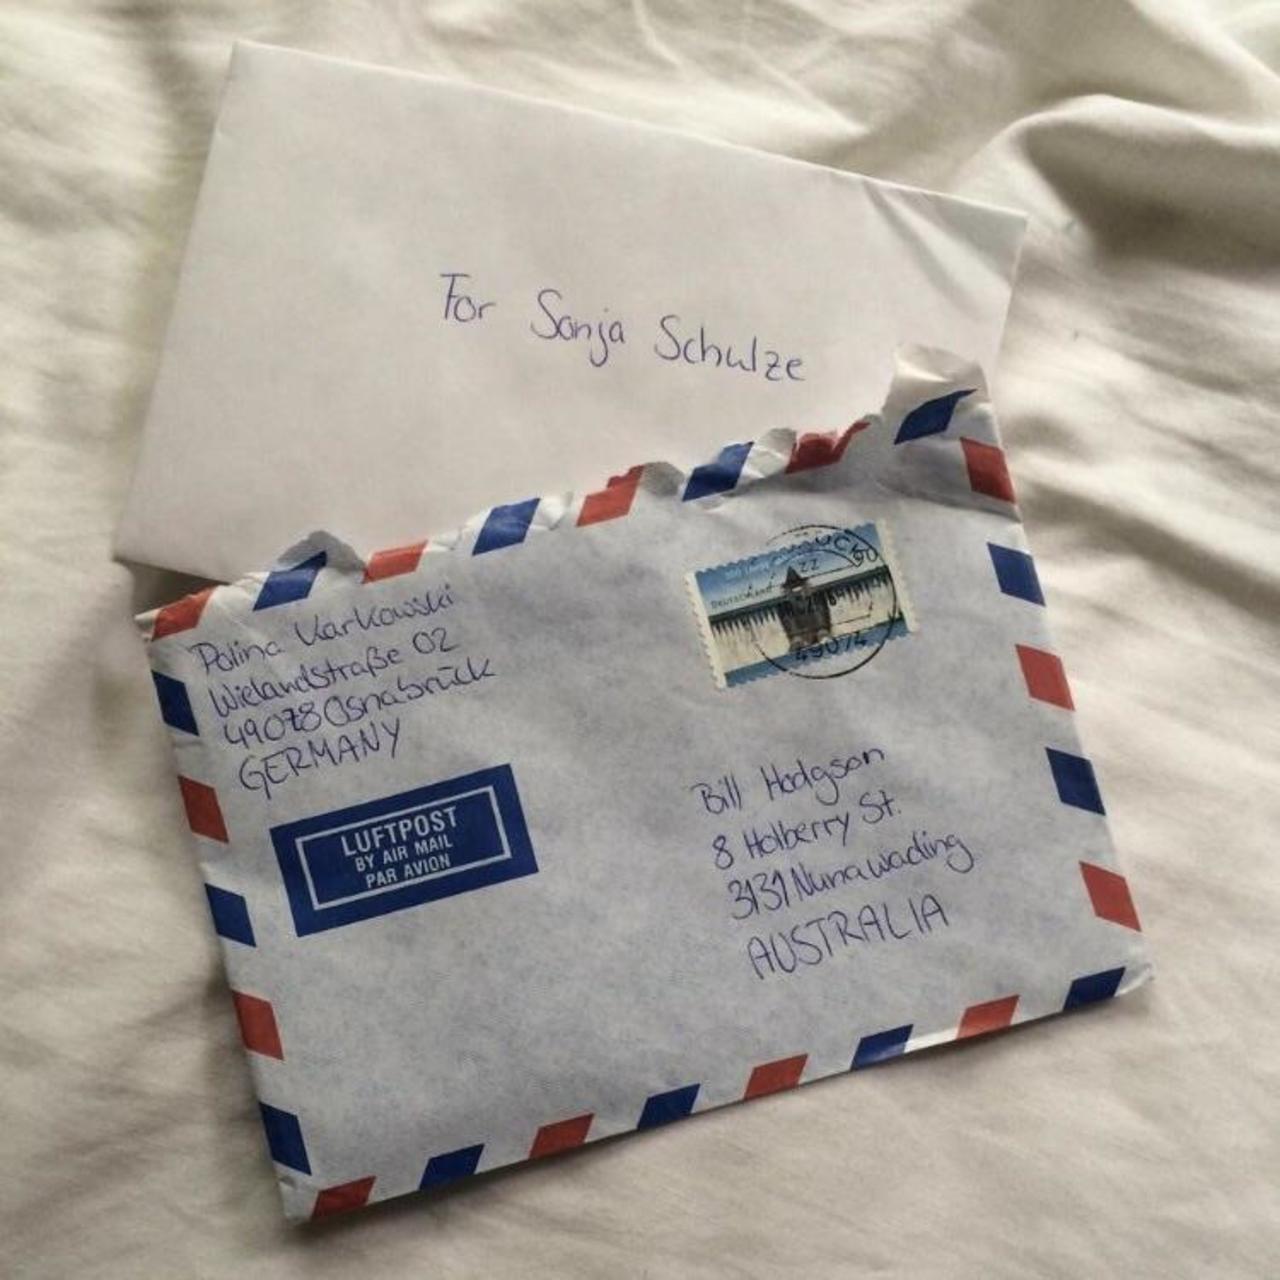 For Sanja Schulze
Polina Karkowski
Wielandstraße 02
49078 Osnabrück
GERMANY
LUFTPOST
BY AIR MAIL
PAR AVION
DEUTSCHLAND
22
49074
Bill Hodgson
8 Holberry St.
3131 Nunawading
AUSTRALIA